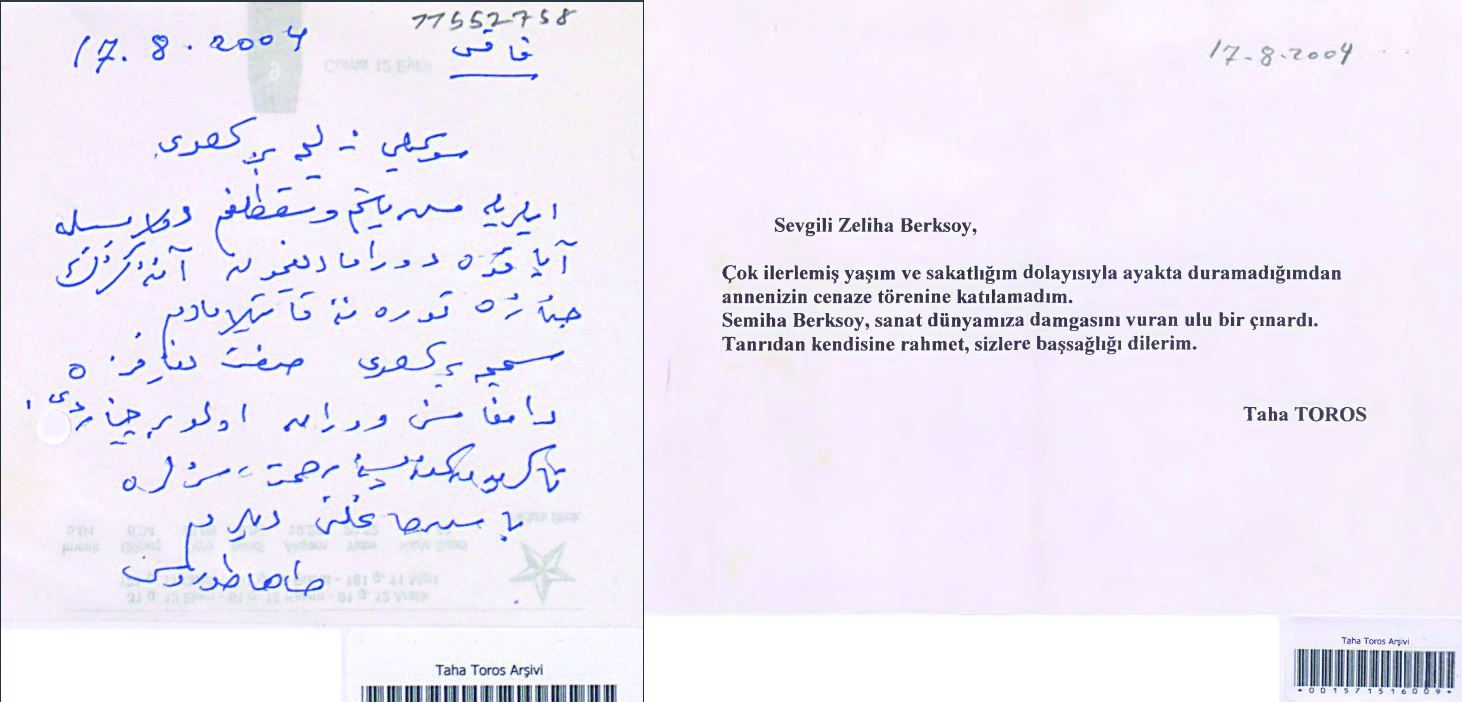 11552758
17.8.2004
فاقس
سوكيلى زليحه بركصوى
ايلريله مش ياشم وسقطلغم دولاييسيله
آياقده دورامادیغمدن آننه ڭزڭ
جنازه تورەننه قاتيلامادم.
سميحه بركصوى صنعت دنيامزه
دامغاسنى ووران اولو بر چناردى.
تاڭريدن كنديسنه رحمت، سزلره
باش صاغلغى ديلرم
طاها طوروس
Taha Toros Arşivi
17-8-2004
Sevgili Zeliha Berksoy,
Çok ilerlemiş yaşım ve sakatlığım dolayısıyla ayakta duramadığımdan
annenizin cenaze törenine katılamadım.
Semiha Berksoy, sanat dünyamıza damgasını vuran ulu bir çınardı.
Tanrıdan kendisine rahmet, sizlere başsağlığı dilerim.
Taha TOROS
Taha Toros Arşivi
*001571516009*